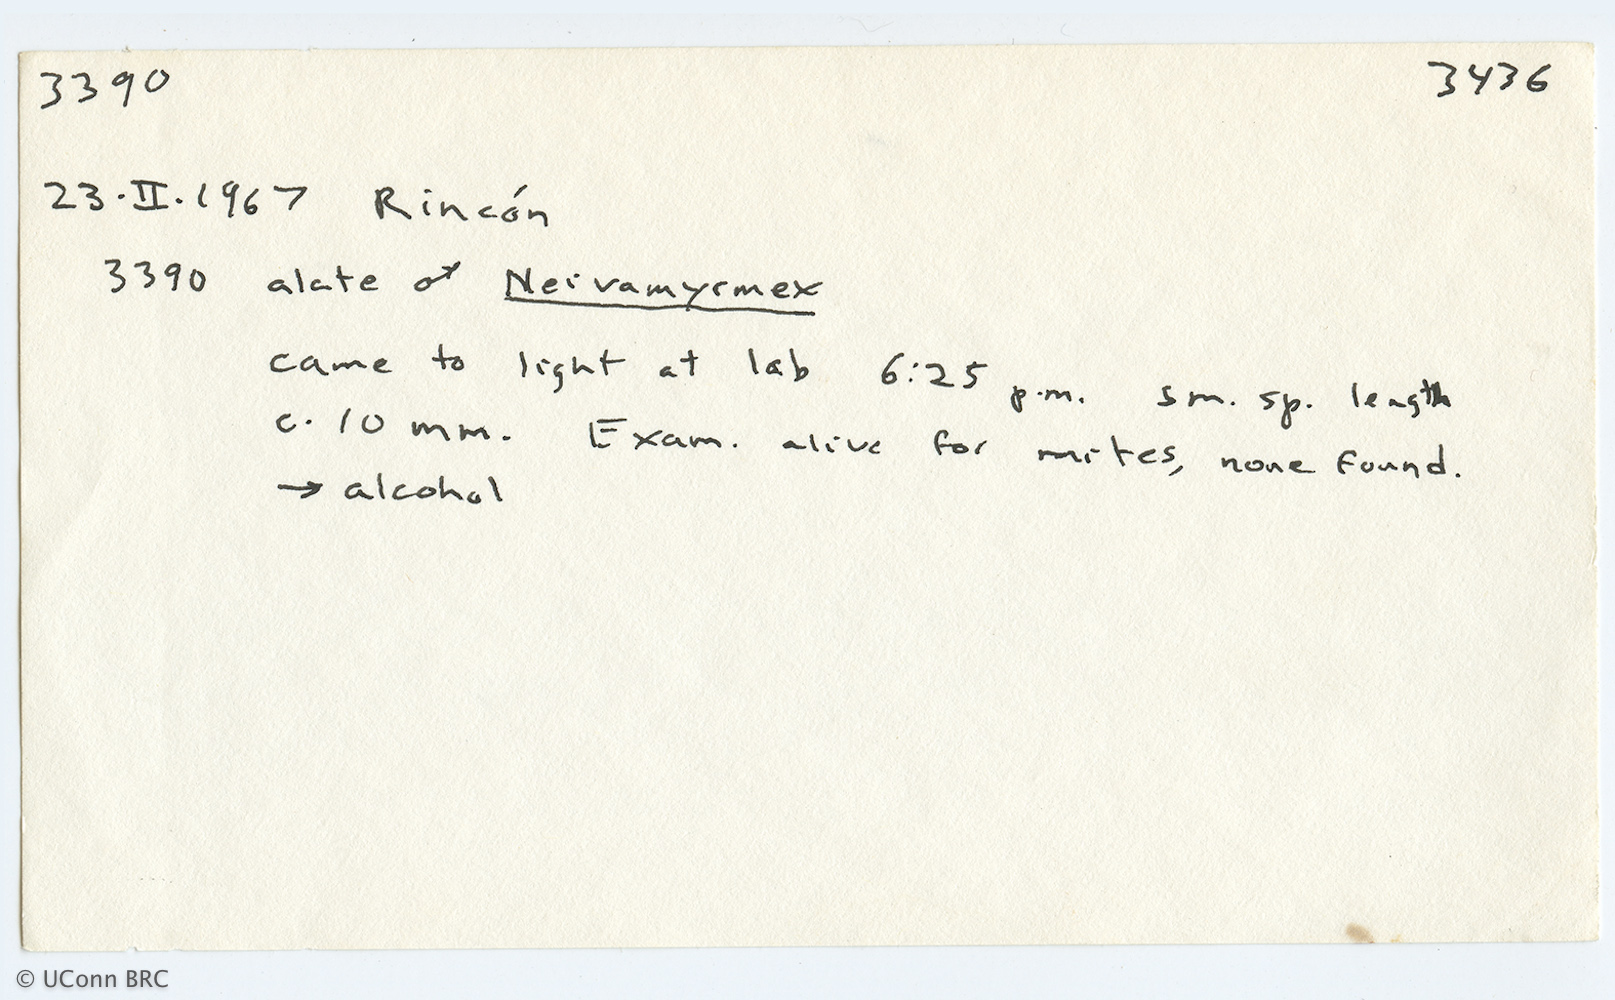 3390 3436
23.II.1967 Rincón
3390 alate ♂ Neivamyrmex
came to light at lab 6:25 p.m. sm. sp. length
c. 10 mm. Exam. alive for mites, none found.
→ alcohol
© UConn BRC